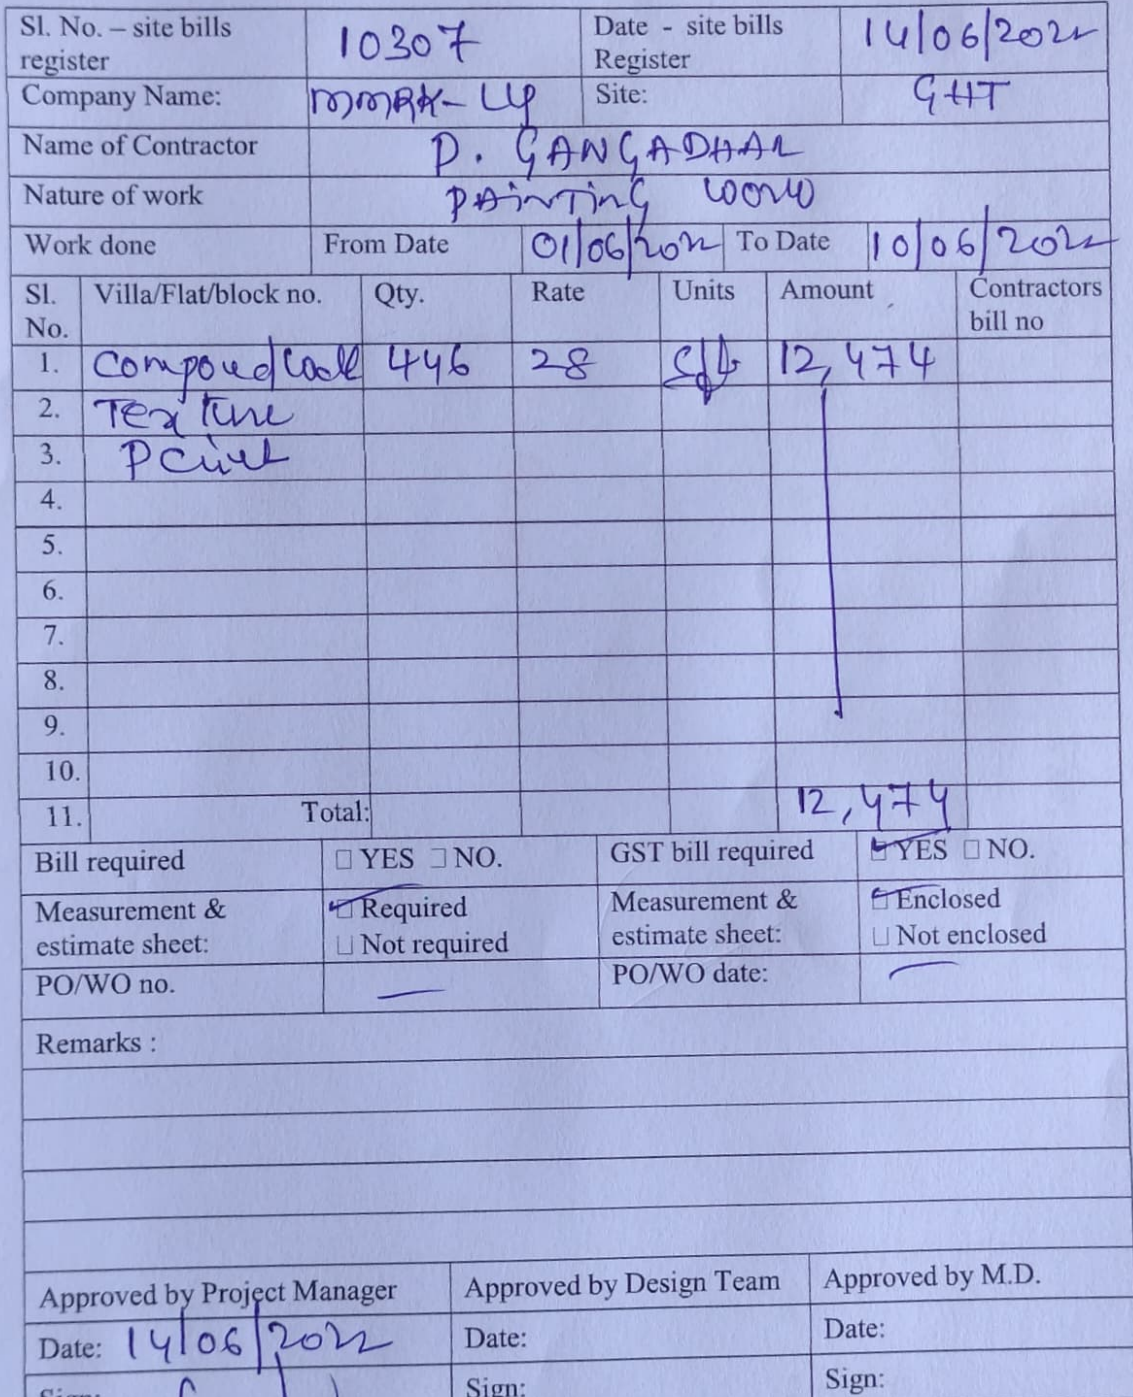 Sl. No. – site bills register 10307 Date - site bills Register 14/06/2022
Company Name: MMRK-LLP Site: GHT
Name of Contractor P. GANGADHAR
Nature of work PAINTING WORK
Work done From Date 01/06/2022 To Date 10/06/2022
Sl. No. Villa/Flat/block no. Qty. Rate Units Amount Contractors bill no
1. Compoud wall 446 28 Sft 12,474
2. Texture
3. Paint
4.
5.
6.
7.
8.
9.
10.
11. Total: 12,474
Bill required □ YES □ NO. GST bill required ☑ YES □ NO.
Measurement & estimate sheet: ☑ Required □ Not required Measurement & estimate sheet: ☑ Enclosed □ Not enclosed
PO/WO no. — PO/WO date: —
Remarks :
Approved by Project Manager Approved by Design Team Approved by M.D.
Date: 14/06/2022 Date: Date:
Sign: Sign: Sign: